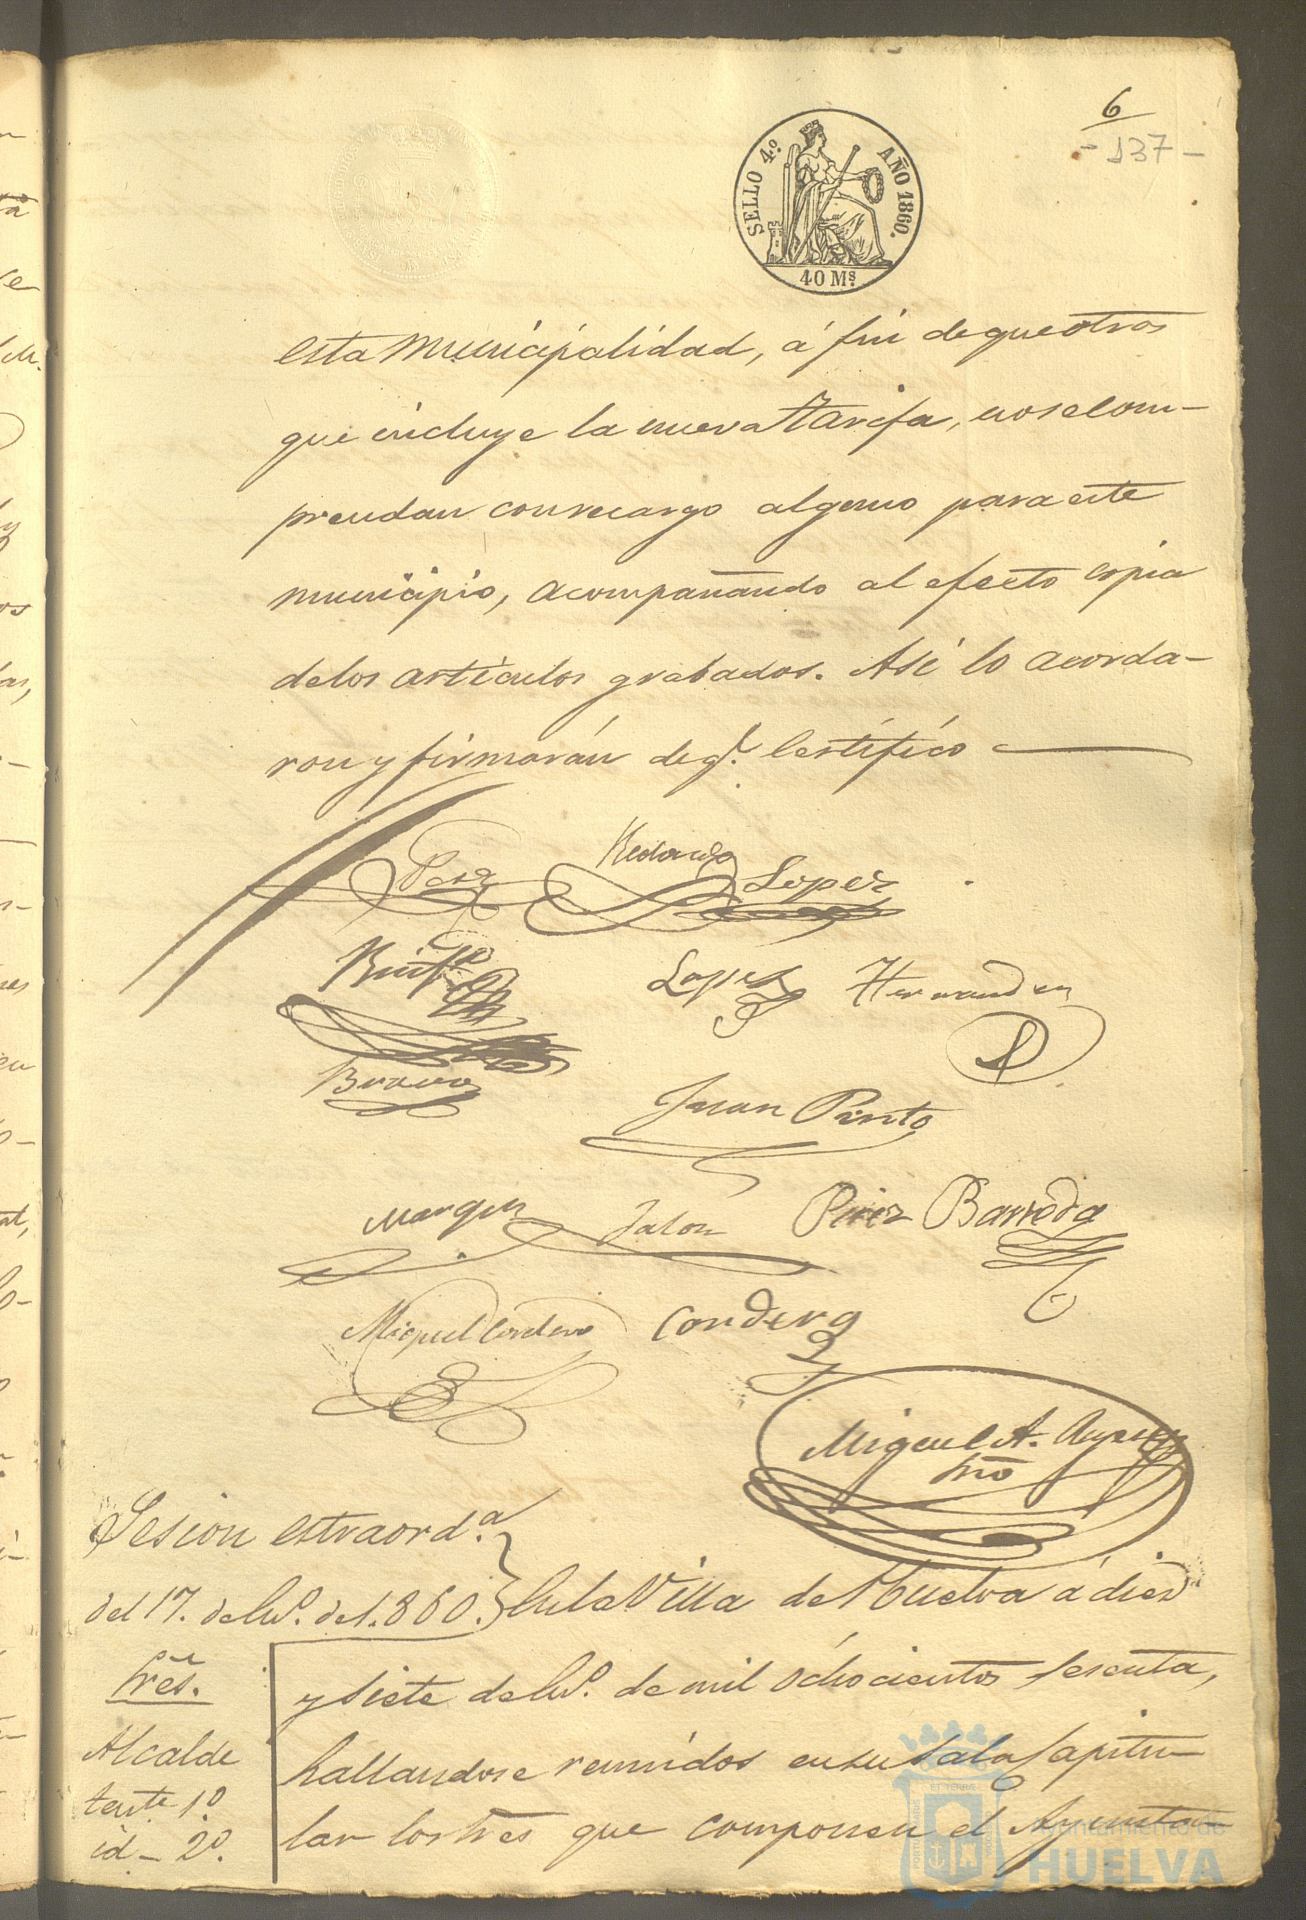 6
-137-
SELLO 4.º AÑO 1860.
40 Ms.
esta Municipalidad, á fin de que otros
que incluye la nueva Tarifa, no se com-
prendan con recargo alguno para este
municipio, acompañando al efecto copia
de los artículos grabados. Asi lo acorda-
ron y firmarán de q.e Certifico
Redondo Lopez
Lopez Hernandez
Bravo
Juan Pinto
Marquez Jalon Perez Barreda
Miguel Cordero Cordero
Miguel A.
Srio
Sesion estraord.a
del 17. de En.o de 1.860. } En la Villa de Huelva á diez
y siete de En.o de mil ochocientos sesenta,
hallandose reunidos en su Sala Capitu-
lar los Sres que componen el Ayunta-
Sres.
Alcalde
tente 1.º
id - 2.º
Ayuntamiento de
HUELVA